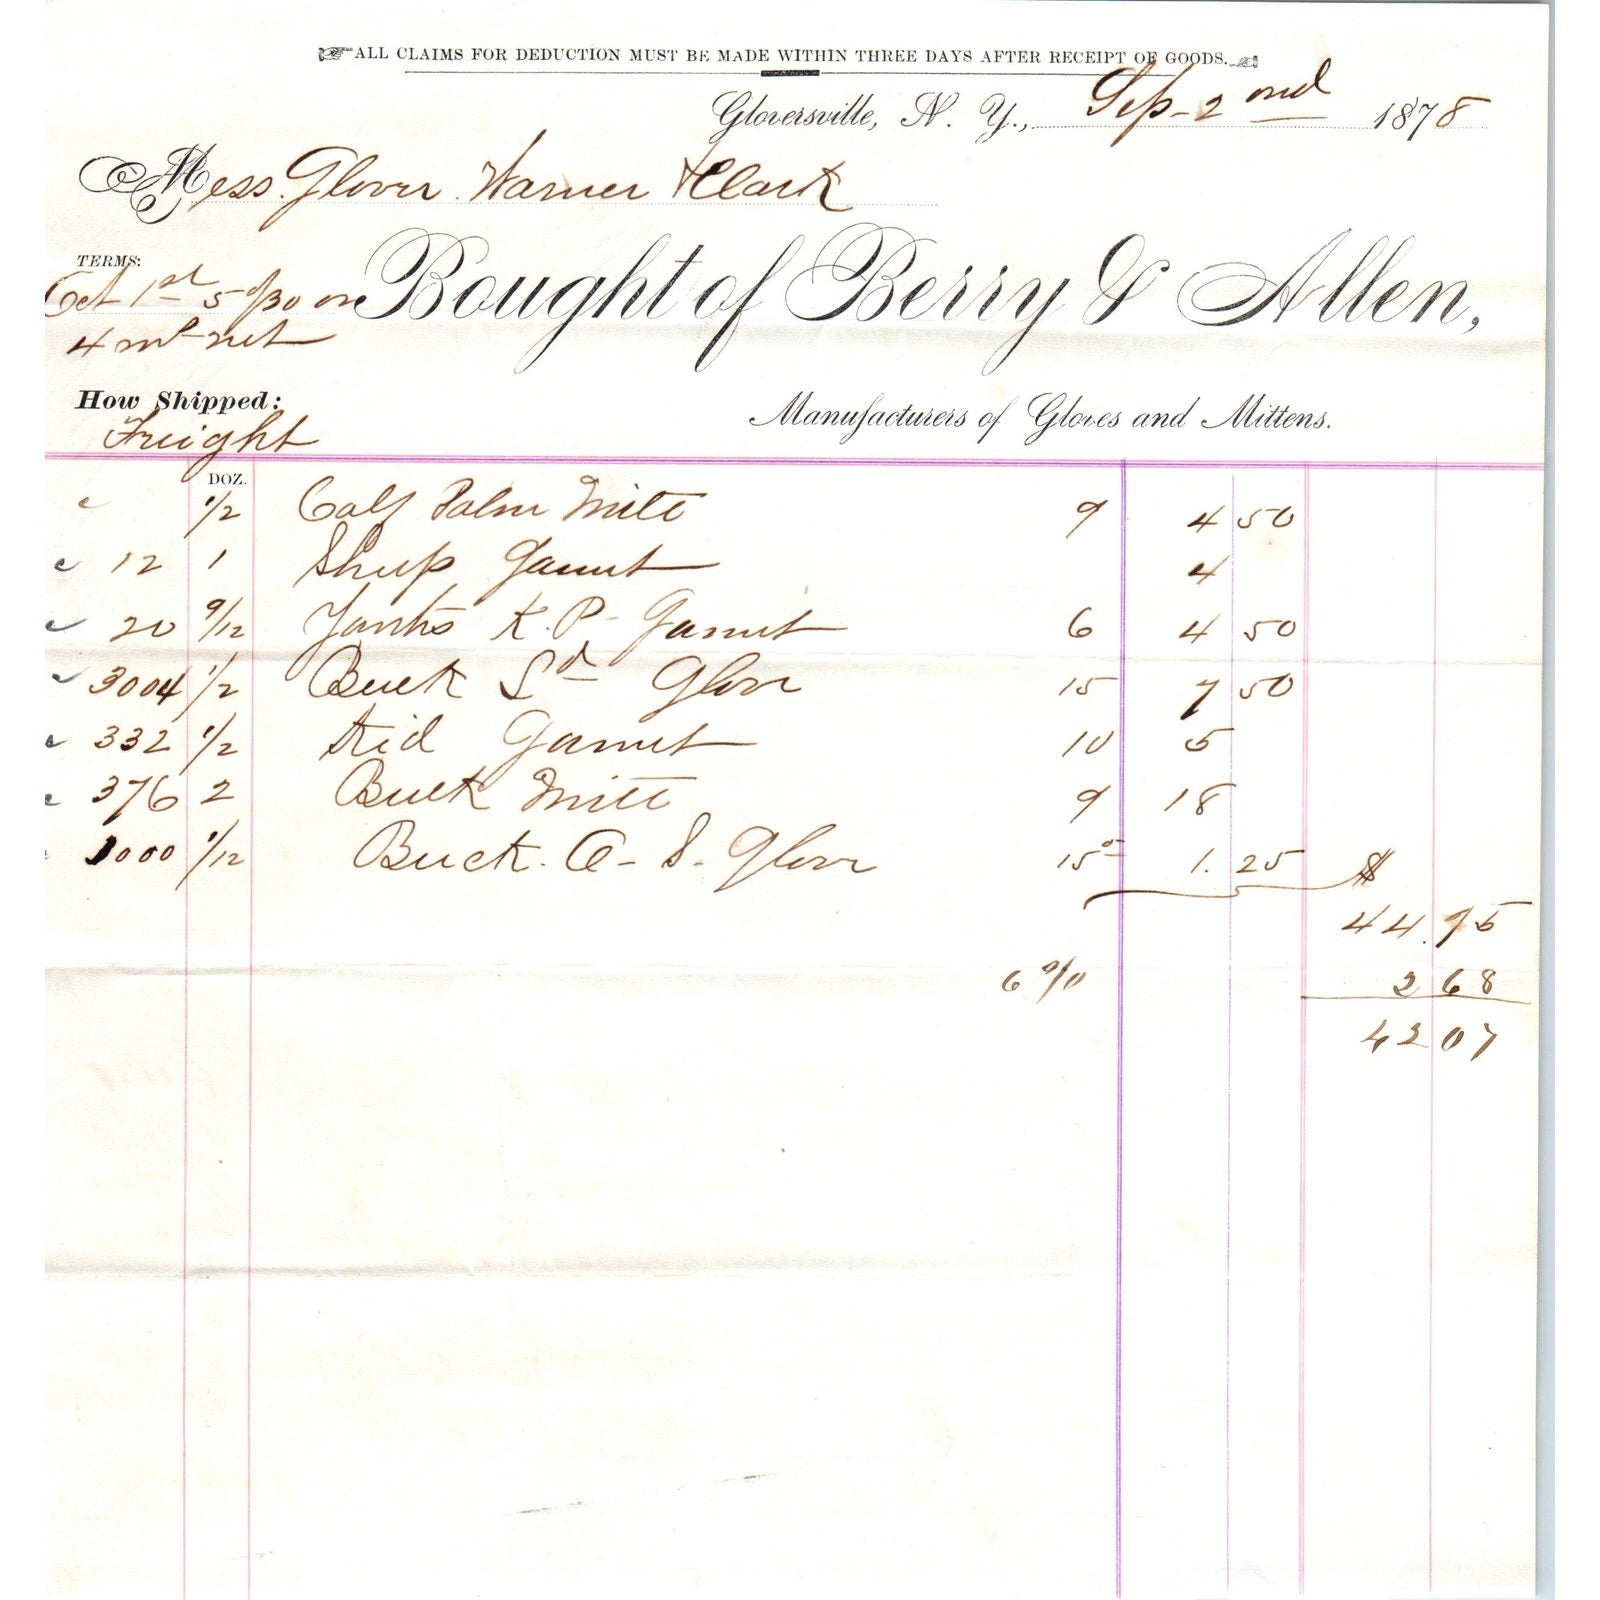 ALL CLAIMS FOR DEDUCTION MUST BE MADE WITHIN THREE DAYS AFTER RECEIPT OF GOODS.
Gloversville, N. Y., Sep-2 ond 1878
Mess. Glover Warner & Clark
TERMS:
Oct 1st 5%30 or
4 mo net
Bought of Berry & Allen,
How Shipped:
Freight
Manufacturers of Gloves and Mittens.
DOZ.
1/2 Calf Palm Mitt 9 4 50
12 1 Sheep Gaunt 4
20 9/12 K. P- Gaunt 6 4 50
3004 1/2 Buck Sd Glove 15 7 50
332 1/2 Kid Gaunt 10 5
376 2 Buck Mitt 9 18
1000 1/12 Buck. O- S. Glove 15 00 1.25 $
44.75
6 % 2 68
42 07